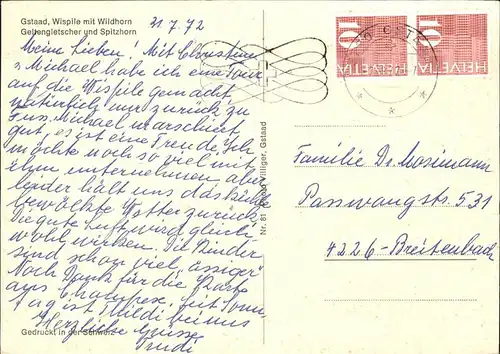 Gstaad, Wispile mit Wildhorn
Geltengletscher und Spitzhorn
31.7.72
Meine Lieben! Mit Christian
& Michael habe ich eine Tour
auf die Wispile gemacht,
natürlich nur zurück zu
Fuss. Michael marschiert
gut, es ist eine Freude. Ich
möchte noch so viel mit
ihm unternehmen aber
leider hält uns das kühle
bewölkte Wetter zurück.
Die gute Luft wird gleich-
wohl wirken. Die Kinder
sind schon viel "ässiger"
Noch Dank für die Karte
aus Champex. Seit Sonn
tag ist Heidi bei uns
Herzliche Grüsse
Trudi
Gedruckt in der Schweiz
Nr. 81
Villiger, Gstaad
10 HELVETIA
10 HELVETIA
Familie Dr. Mosimann
Passwangstr. 531
4226-Breitenbach